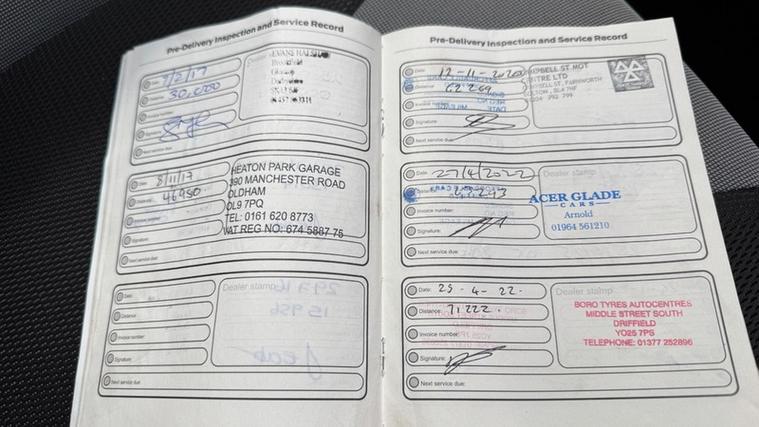 Pre-Delivery Inspection and Service Record
Date: 7/2/17
Distance: 30,000
Invoice number:
Signature:
Next service due:
EVANS HALSHAW
Date: 8/11/17
Distance: 46950
Invoice number:
Signature:
Next service due:
HEATON PARK GARAGE
390 MANCHESTER ROAD
OLDHAM
OL9 7PQ
TEL: 0161 620 8773
VAT REG NO: 674 5887 75
Date:
Distance:
Invoice number:
Signature:
Next service due:
Dealer stamp
Pre-Delivery Inspection and Service Record
Date: 12-11-2020
Distance: 62269
Signature:
Next service due:
MOT
CENTRE LTD
Date: 27/4/2022
Invoice number:
Signature:
Next service due:
Dealer stamp
ACER GLADE
CARS
Arnold
01964 561210
Date: 25-4-22.
Distance: 71222.
Invoice number:
Signature:
Next service due:
Dealer stamp
BORO TYRES AUTOCENTRES
MIDDLE STREET SOUTH
DRIFFIELD
YO25 7PS
TELEPHONE: 01377 252896